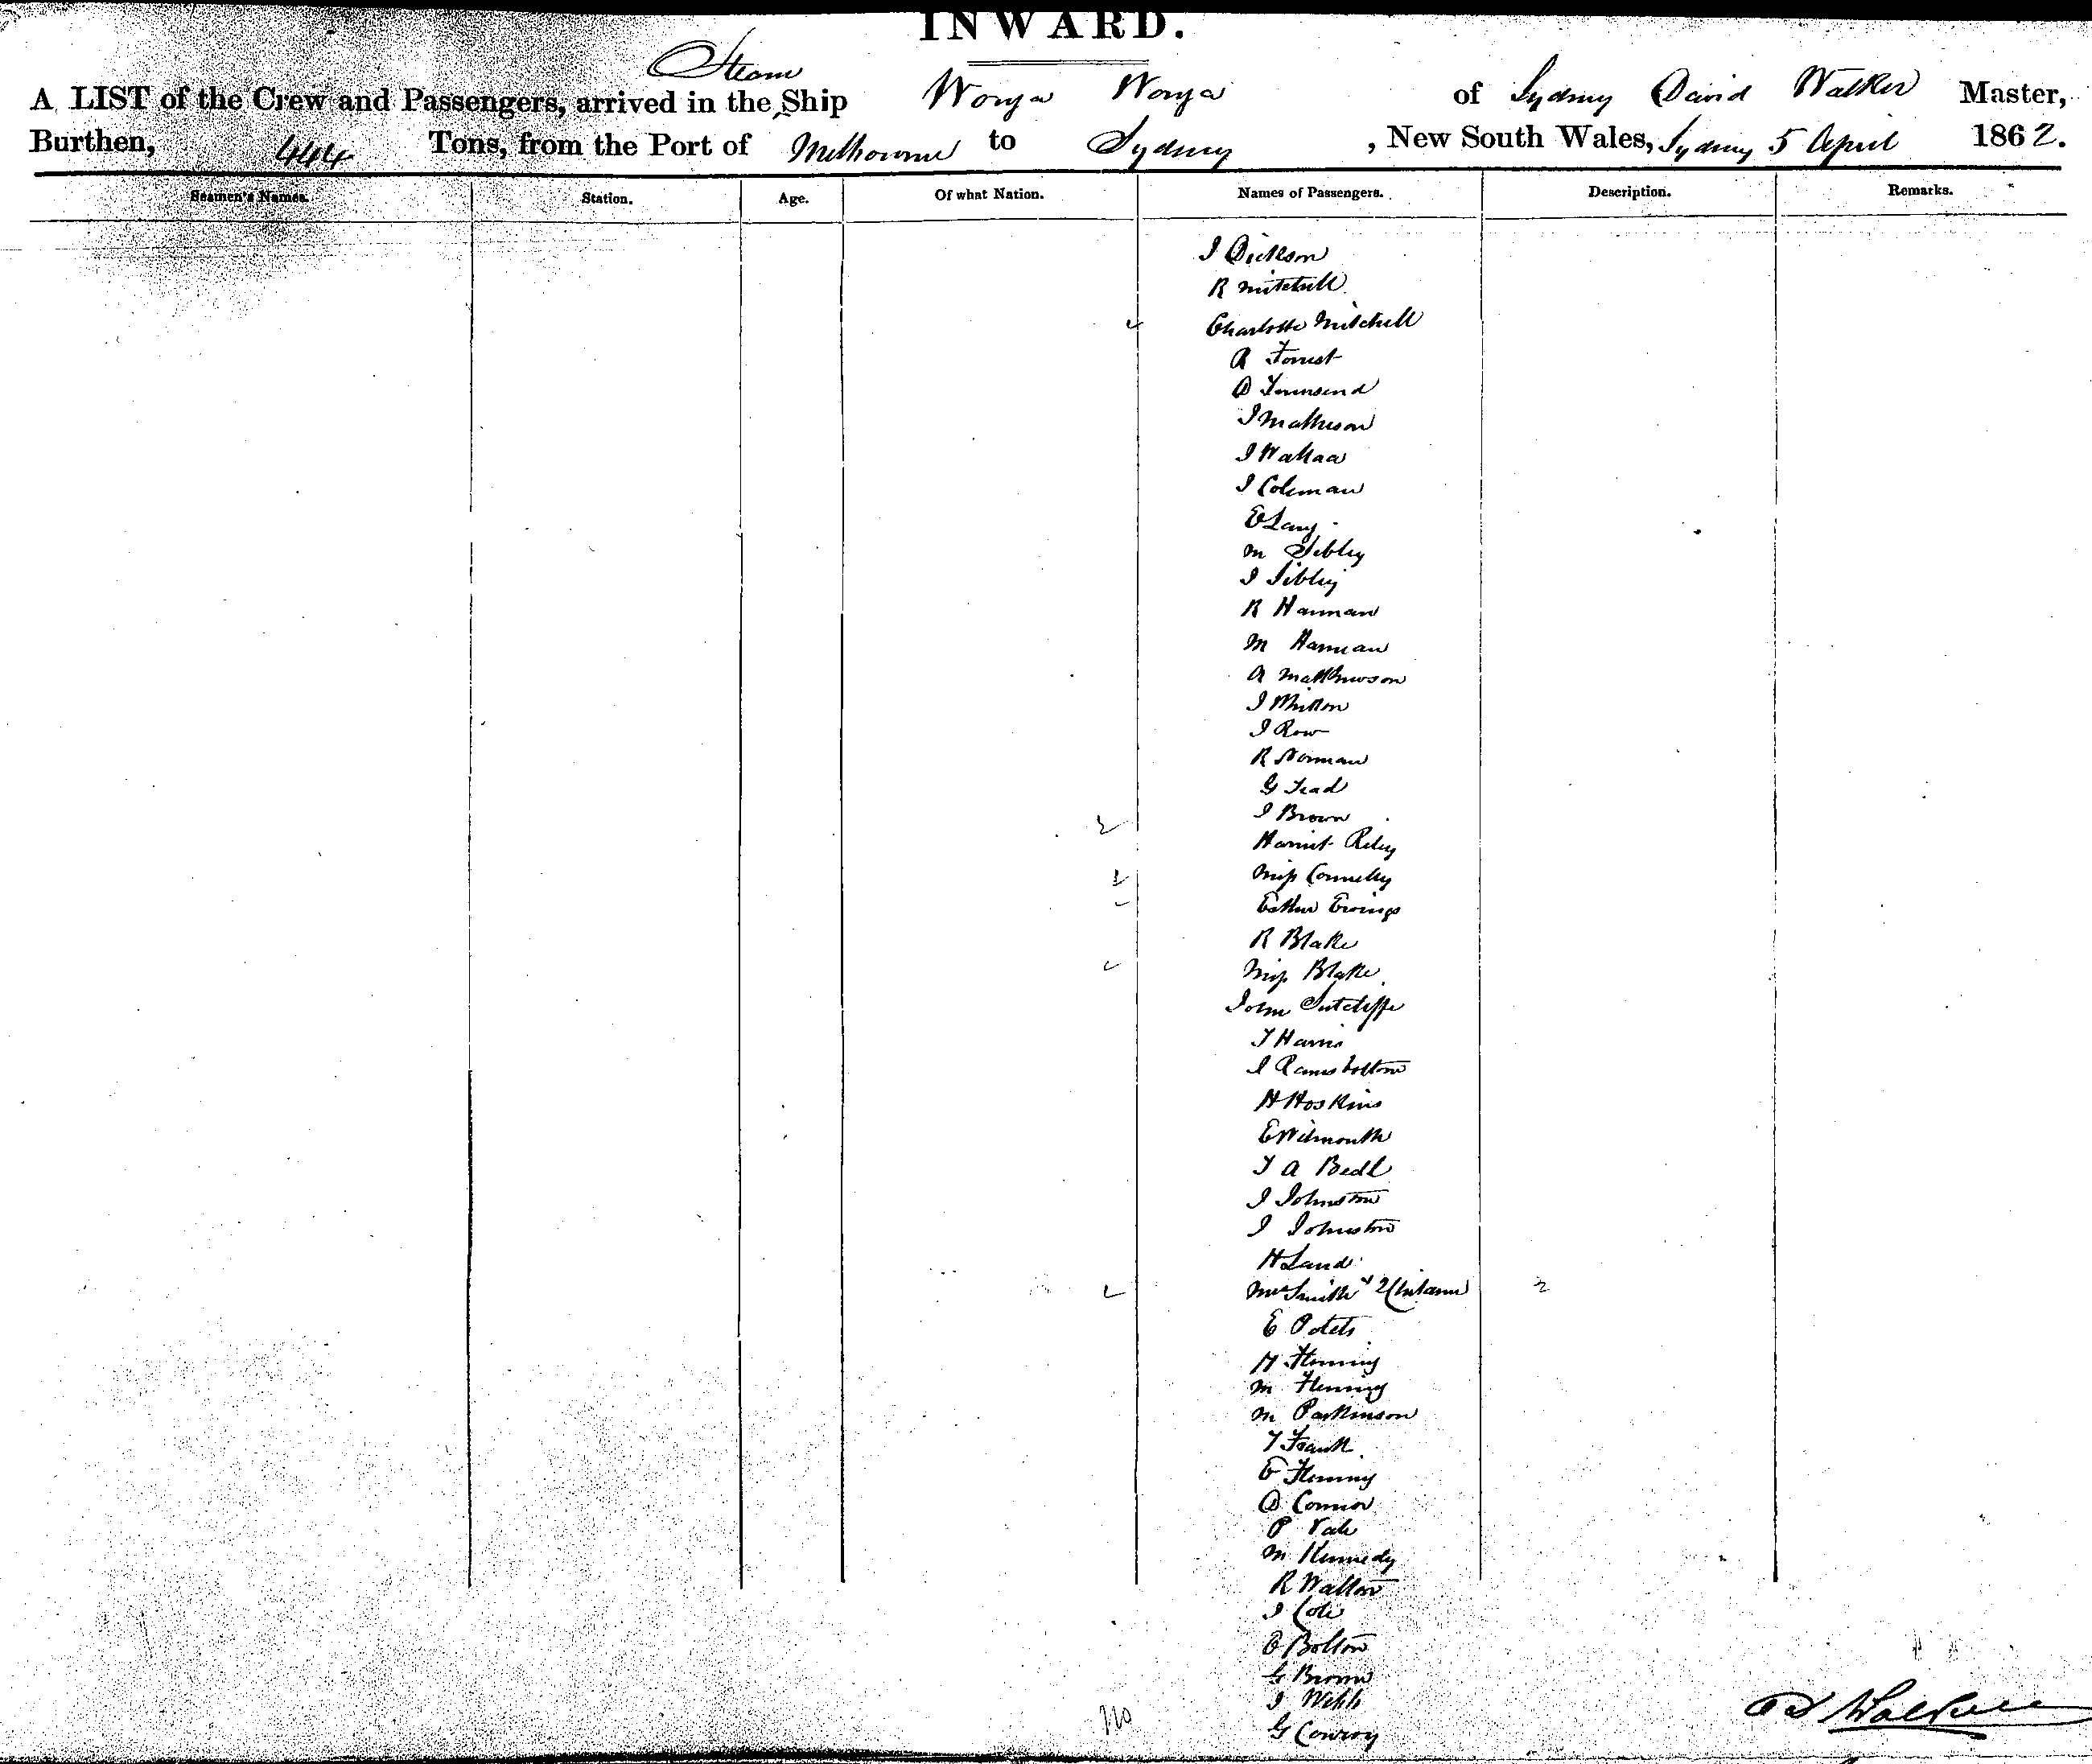 INWARD.
Steam
A LIST of the Crew and Passengers, arrived in the Ship Wonga Wonga of Sydney David Walker Master,
Burthen, 444 Tons, from the Port of Melbourne to Sydney, New South Wales, Sydney 5 April 1862.
Seamen's Names. Station. Age. Of what Nation. Names of Passengers. Description. Remarks.
J Dickson
R Mitchell
Charlotte Mitchell
A Forrest
D Townsend
J Matheson
J Wallace
J Coleman
E Lang
M Sibley
J Sibley
R Hannan
M Hannan
A Matthewson
J Whitton
J Row
R Norman
G Tead
J Brown
Harriet Riley
Miss Connelly
Esther Ewings
R Blake
Miss Blake
John Sutcliffe
T Harris
J Ramsbottom
H Hoskins
E Wilmouth
T A Bedl
J Johnston
J Johnston
H Land
Mrs Smith & 2 Children 2
E
H Fleming
M Fleming
M Parkinson
T Frank
E Fleming
D Connor
P Vale
M Kennedy
R Walton
J Cole
E Bolton
G Brown
J Webb
G Conroy
D Walker